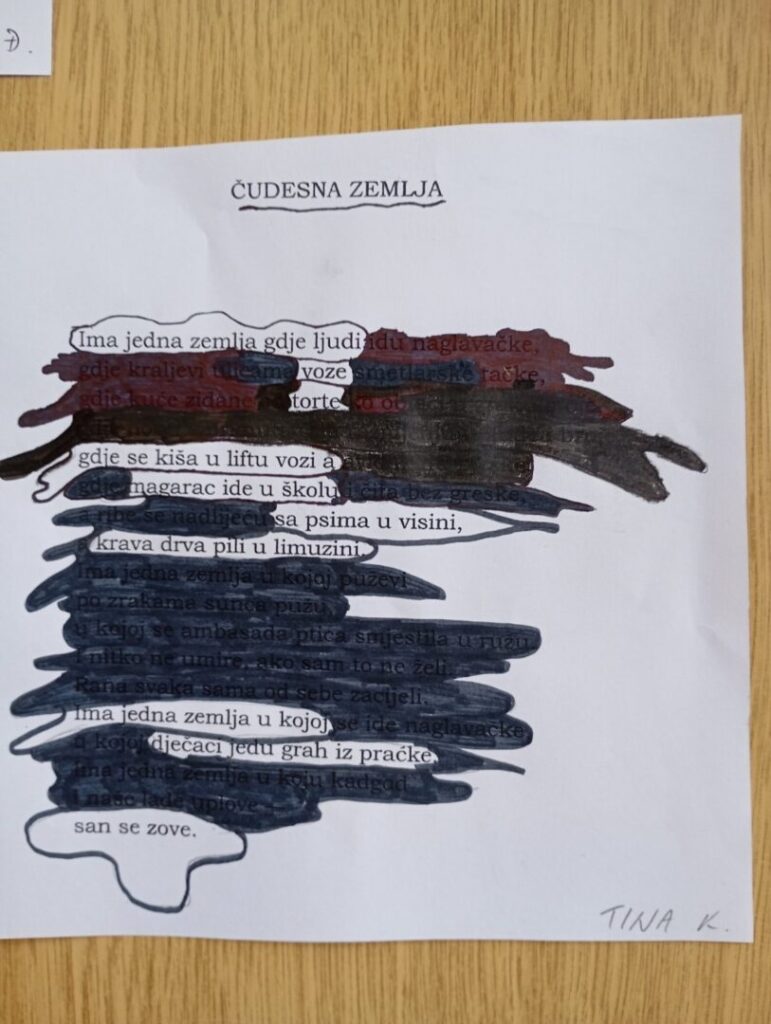 Đ.
ČUDESNA ZEMLJA
Ima jedna zemlja gdje ljudi idu naglavačke,
gdje kraljevi ulicama voze smetlarske tačke,
gdje kuće zidane torte
gdje se kiša u liftu vozi a
gdje magarac ide u školu čita bez greške,
a ribe se nadlijeću sa psima u visini,
a krava drva pili u limuzini.
Ima jedna zemlja u kojoj puževi
po zrakama sunca pužu,
u kojoj se ambasada ptica smjestila u ružu
i nitko ne umire, ako sam to ne želi.
Rana svaka sama od sebe zacijeli.
Ima jedna zemlja u kojoj se ide naglavačke
u kojoj dječaci jedu grah iz praćke,
Ima jedna zemlja u koju kadgod
i naše lađe uplove
san se zove.
TINA K.